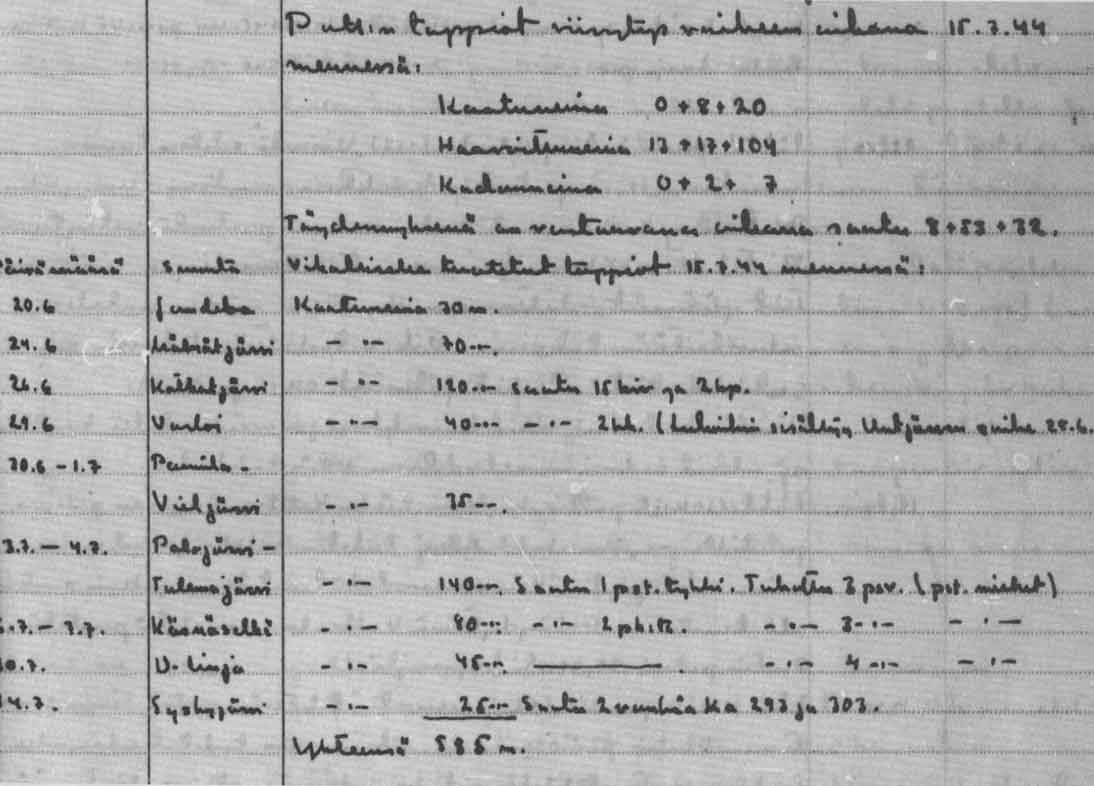 Patl:n tappiot viivytysvaiheen aikana 15.7.44
mennessä:
Kaatuneina 0+8+20
Haavoittuneina 13+17+104
Kadonneina 0+2+7
Täydennyksenä on vastaavana aikana saatu 8+53+32.
Päivämäärä Suunta Vihollisille tuotetut tappiot 15.7.44 mennessä:
20.6 Jandeba Kaatuneina 30 m.
24.6 -"- 70-"-.
26.6 -"- 120-"- saatu 15 kiv ja 2 kp.
29.6 -"- 40-"- -"- (lukuihin sisältyy 28.6.
30.6 - 1.7
Vieljärvi -"- 35-"-.
3.7. - 4.7. Palojärvi -
Tulemajärvi -"- 140-"-. Saatu 1 pst.tykki. Tuhottu 3 psv. (pst. miehet)
.7. - 7.7. Käsnäselkä -"- 80-"- -"- 2 -"- 3-"- -"-
0.7. U-linja -"- 45-"-. -"- 4-"- -"-
4.7. Syskyjärvi -"- 25-"- Saatu 2 vankia Ka 293 ja 303.
Yhteensä 585 m.